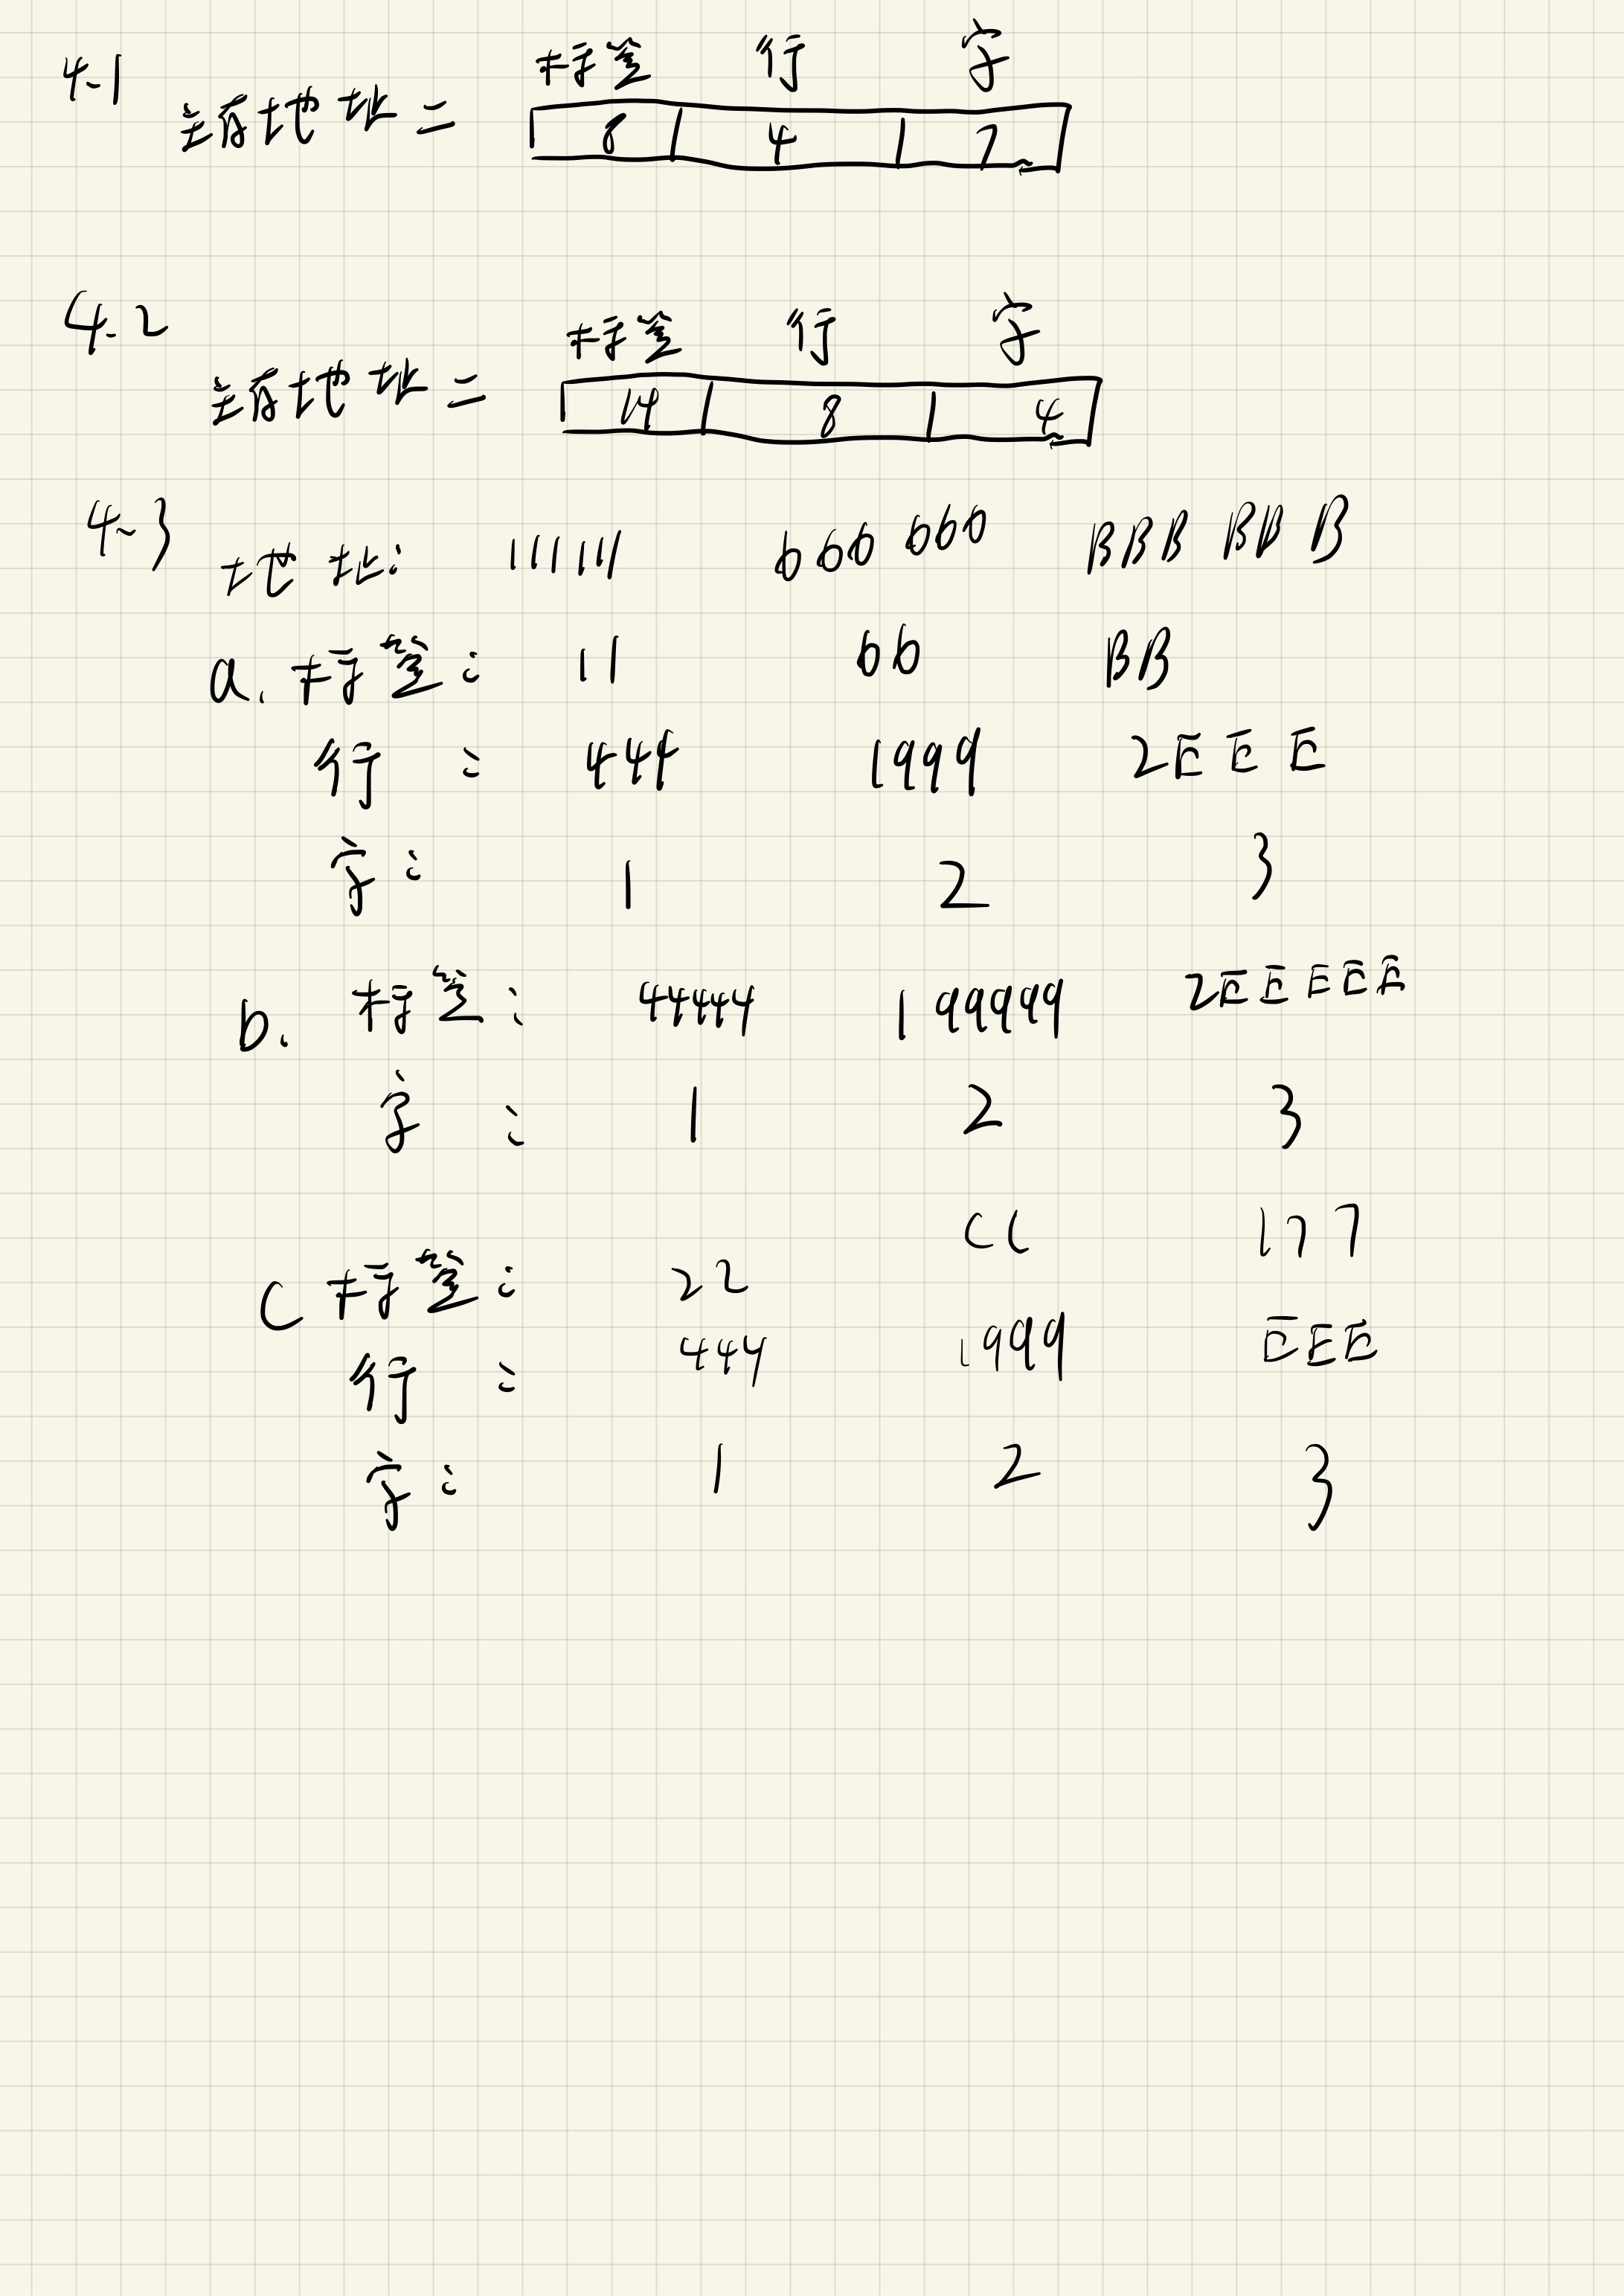 4-1
标签 行 字
主存地址 = 8 4 7
4.2
标签 行 字
主存地址 = 14 8 4
4-3
地址: 111111 666666 BBBBBB
a. 标签: 11 66 BB
行: 444 1999 2EEE
字: 1 2 3
b. 标签: 44444 199999 2EEEEE
字: 1 2 3
c 标签: 22 CC 177
行: 444 1999 EEE
字: 1 2 3